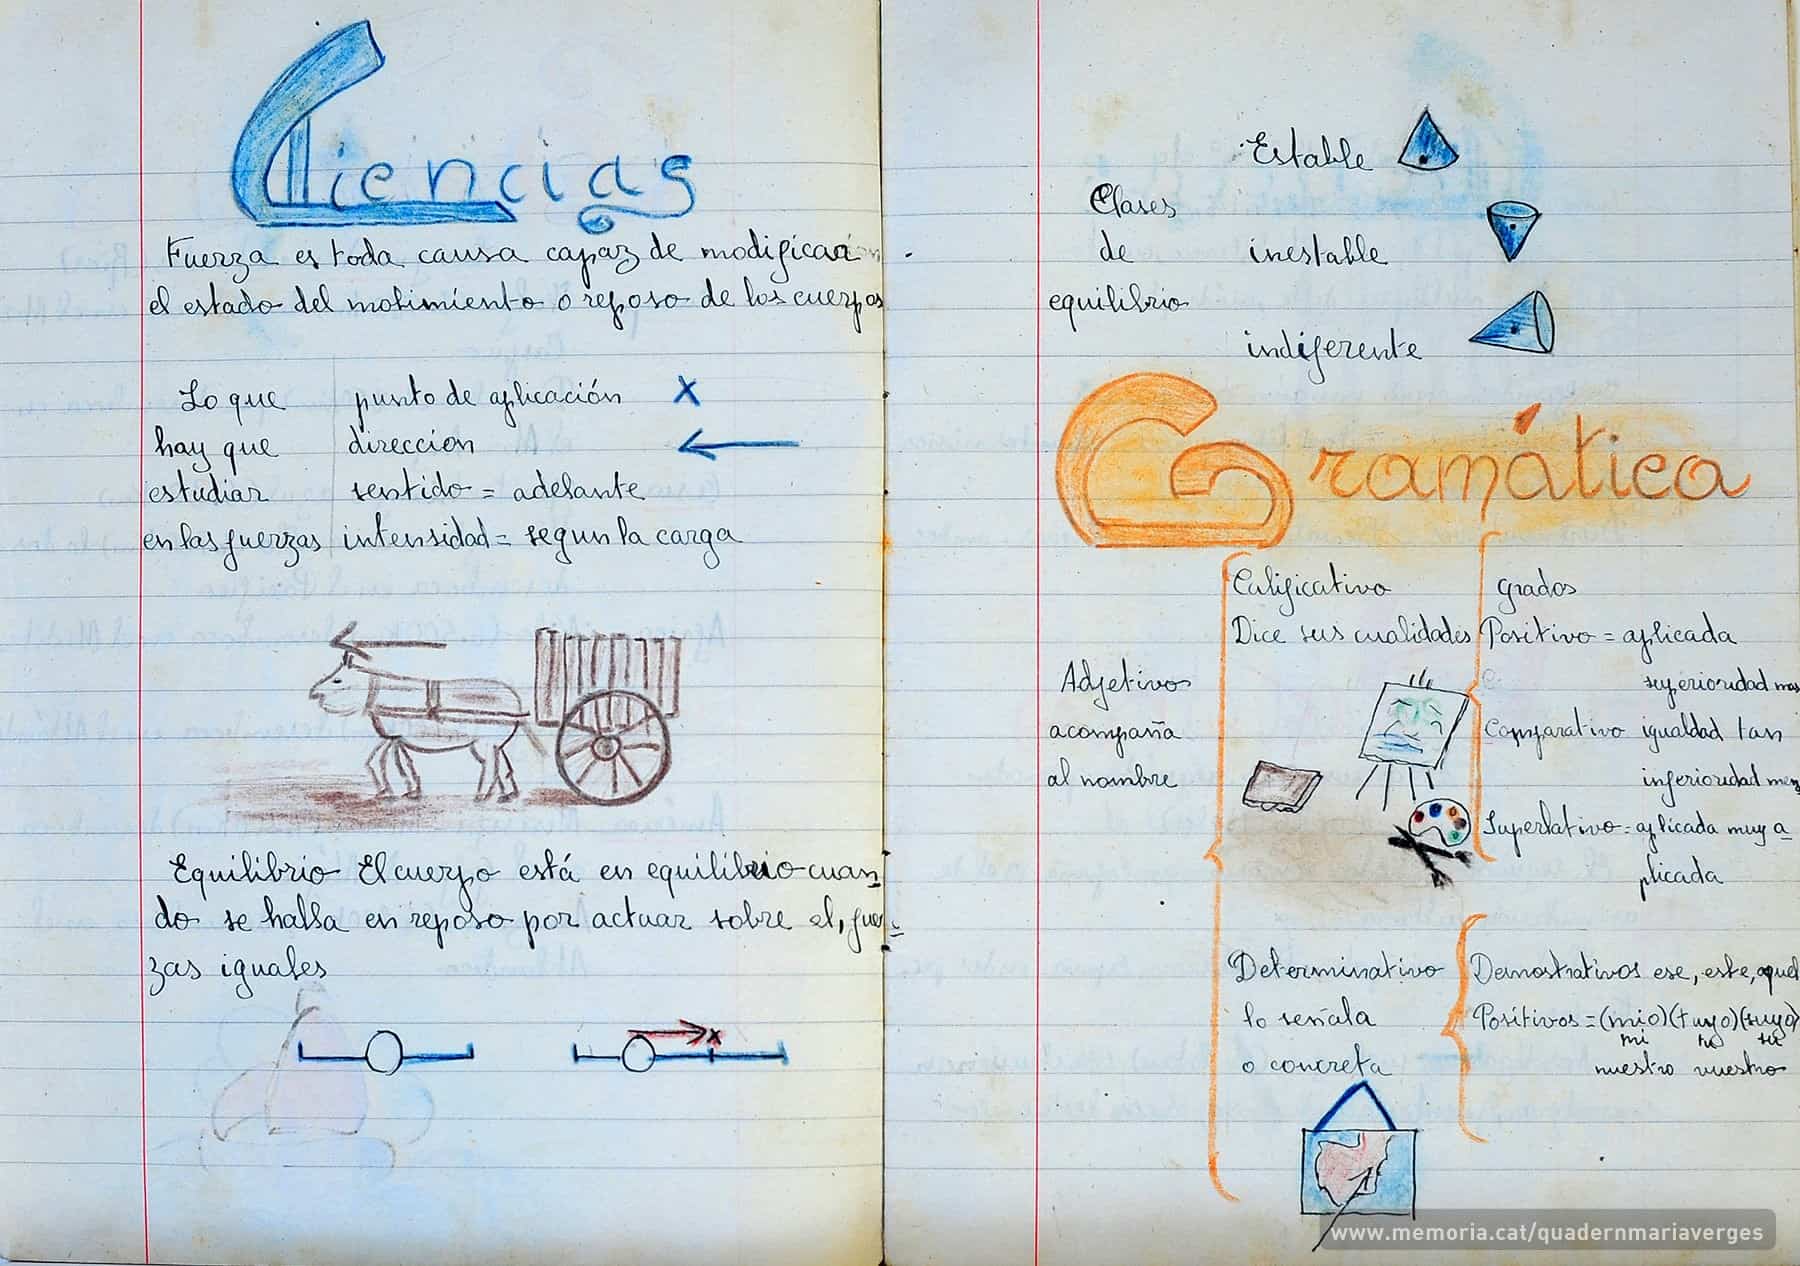 Ciencias
Fuerza es toda causa capaz de modificar
el estado del movimiento o reposo de los cuerpos
Lo que
hay que
estudiar
en las fuerzas
punto de aplicación x
dirección
sentido = adelante
intensidad = segun la carga
Equilibrio El cuerpo está en equilibrio cuan-
do se halla en reposo por actuar sobre el, fuer-
zas iguales
x
Clases
de
equilibrio
Estable
inestable
indiferente
Gramática
Adjetivos
acompaña
al nombre
Calificativo
Dice sus cualidades
grados
Positivo = aplicada
Comparativo
superioridad mas
igualdad tan
inferioridad
Superlativo = aplicada muy a-
plicada
Determinativo
lo señala
o concreta
Demostrativos ese, este, aquel
Positivos = (mio) (tuyo) (suyo)
mi tu su
nuestro vuestro
www.memoria.cat/quadernmariaverges